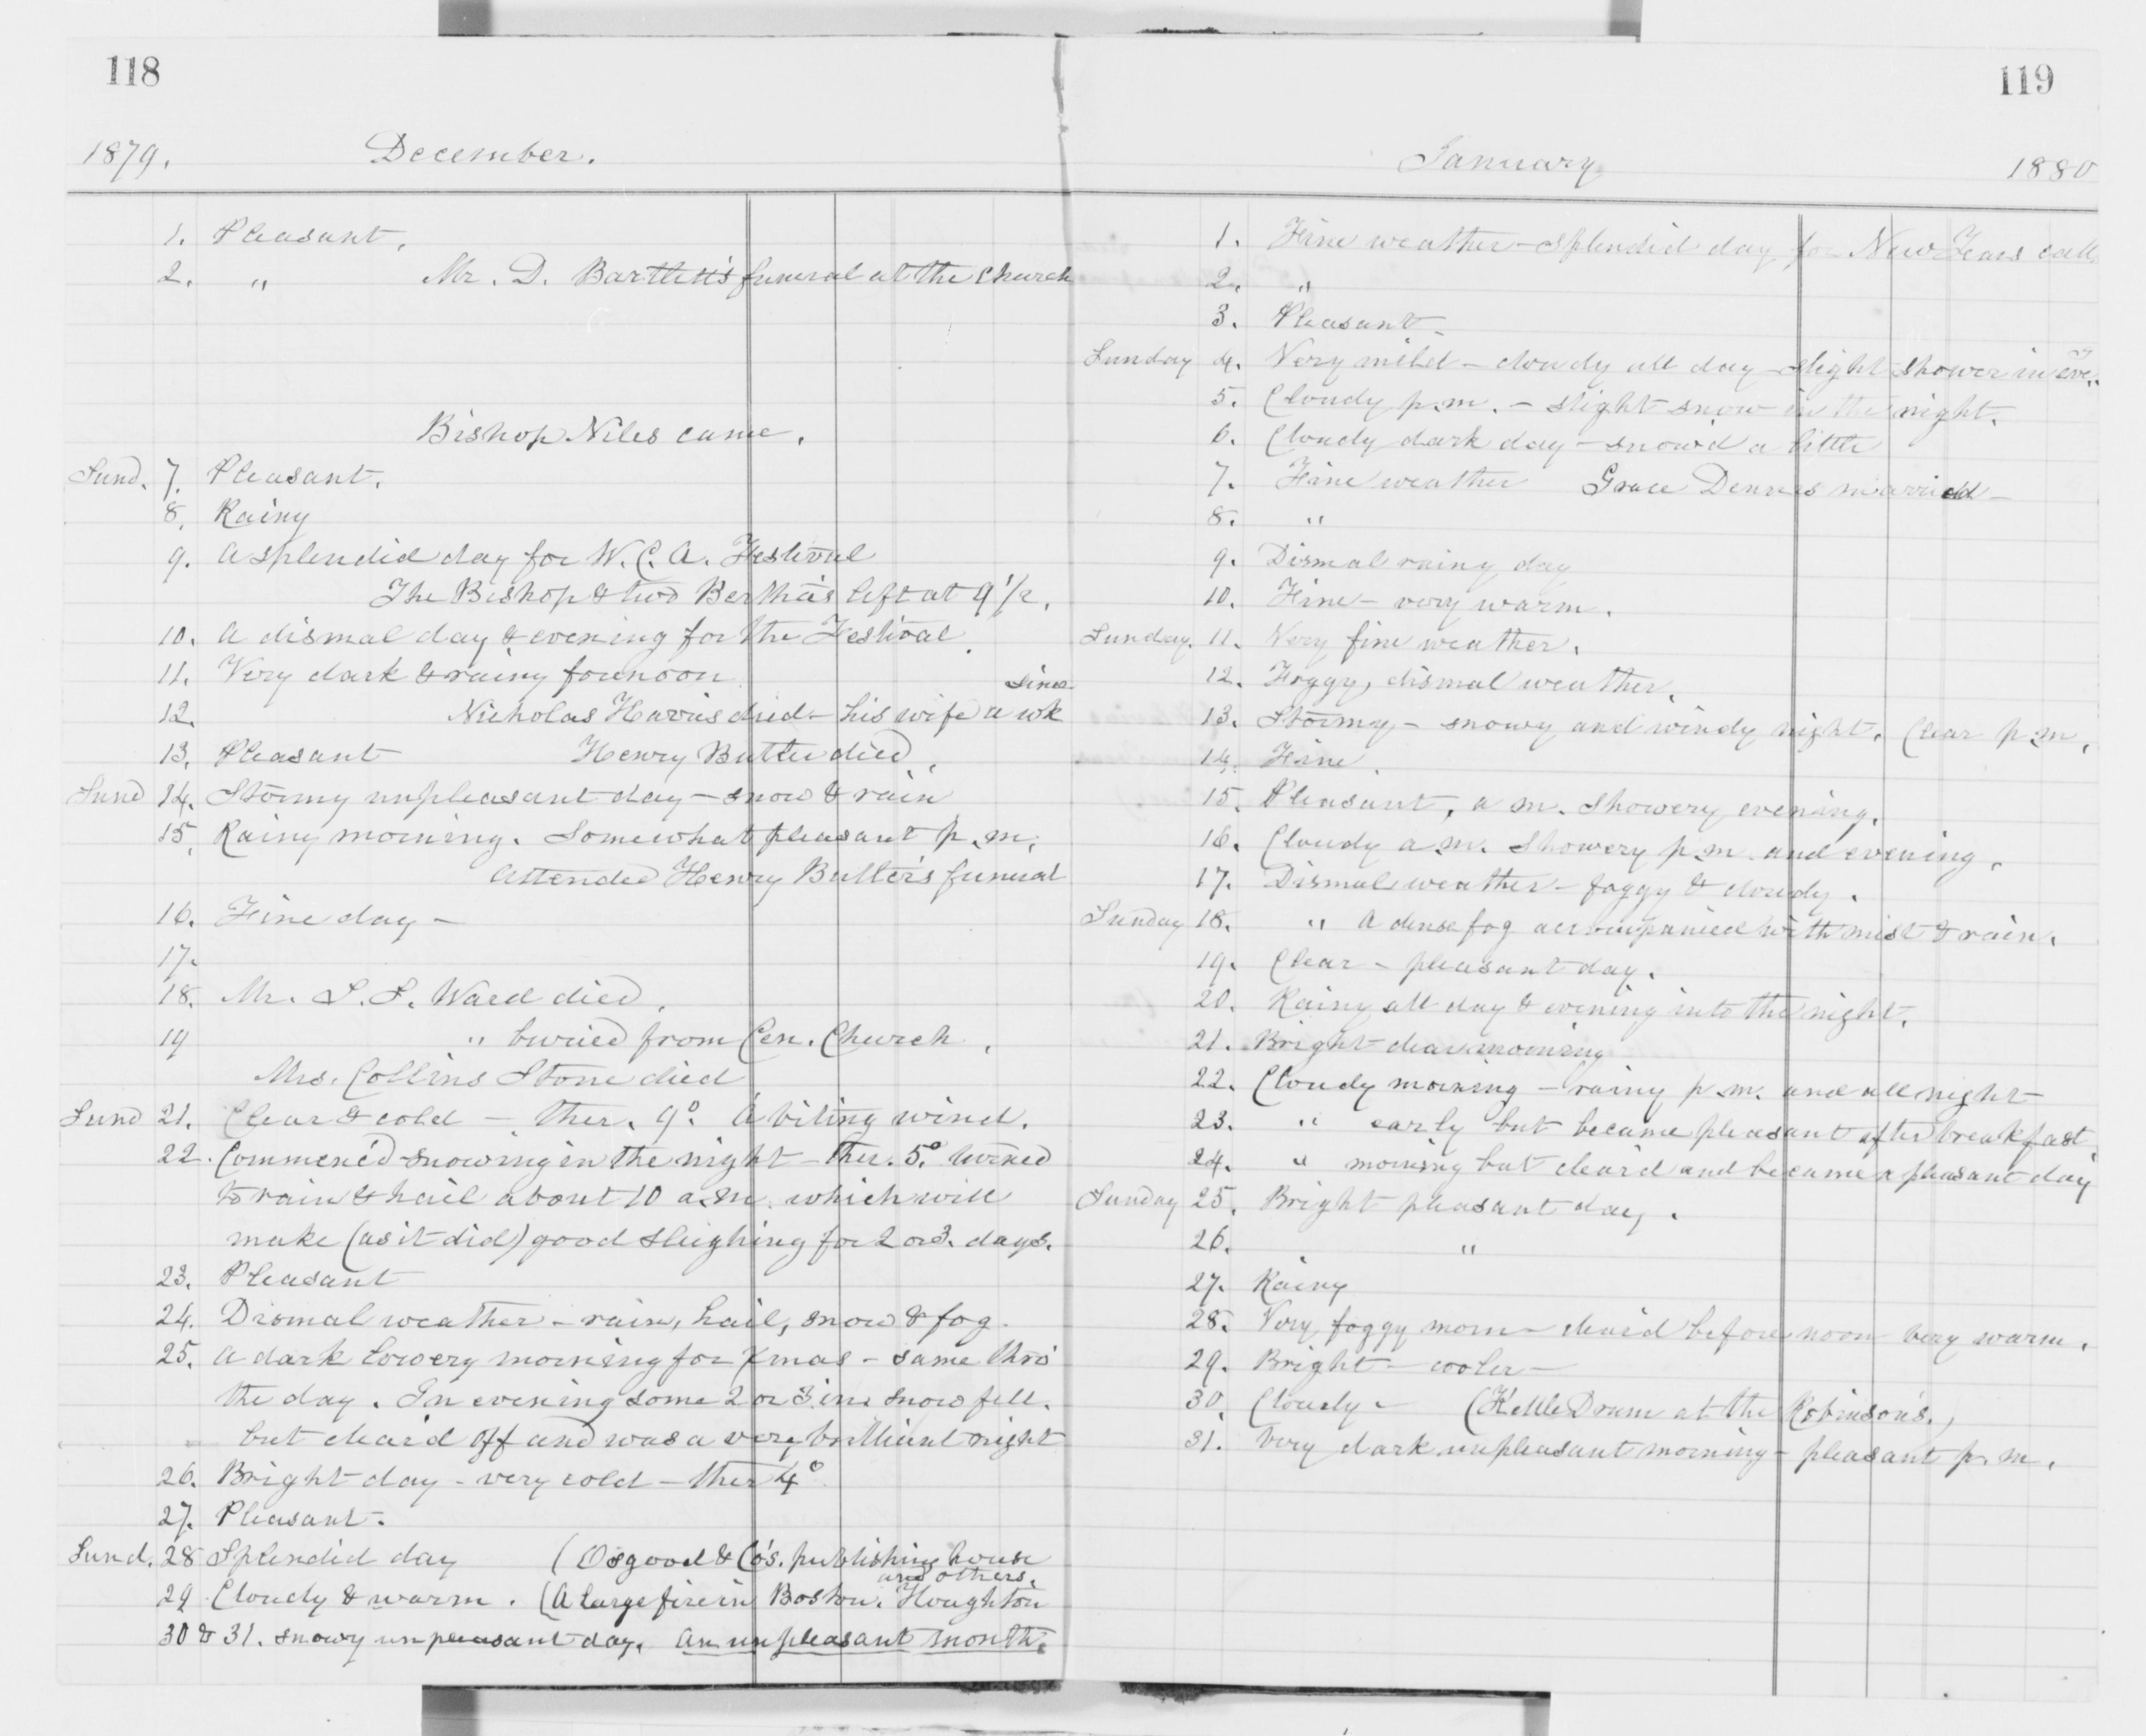 118
1879. December.
1. Pleasant.
2. " Mr. D. Bartlett's funeral at the Church
Bishop Niles came.
Sund. 7. Pleasant.
8. Rainy
9. A splendid day for W. C. A. Festival
The Bishop & two Bertha's left at 9 1/2.
10. A dismal day & evening for the Festival.
11. Very dark & rainy forenoon
since
12. Nicholas Harris died - his wife a wk
13. Pleasant Henry Butler died.
Sund 14. Stormy unpleasant day - snow & rain
15. Rainy morning. Somewhat pleasant p.m.
Attended Henry Butler's funeral
16. Fine day -
17.
18. Mr. S. S. Ward died.
19 " buried from Cen. Church.
Mrs. Collins Stone died
Sund 21. Clear & cold - ther. 9°. A biting wind.
22. Commenc'd snowing in the night - ther. 5°. turned
to rain & hail about 10 a.m. which will
make (as it did) good sleighing for 2 or 3. days.
23. Pleasant
24. Dismal weather - rain, hail, snow & fog.
25. A dark lowery morning for Xmas - same thro'
the day. In evening some 2 or 3 in. snow fell.
but clear'd off and was a very brilliant night
26. Bright day - very cold - ther 4°
27. Pleasant.
Sund. 28 Splendid day (Osgood & Co's. publishing house
and others.
29 Cloudy & warm. (A large fire in Boston. Houghton
30 & 31. Snowy unpleasant day. An unpleasant month.
119
January 1880
1. Fine weather - splendid day for New Years call
2. "
3. Pleasant.
Sunday 4. Very mild - cloudy all day - slight shower in eve.
5. Cloudy p.m. - slight snow in the night.
6. Cloudy dark day - snow'd a little
7. Fine weather Grace Dennis married -
8. "
9. Dismal rainy day
10. Fine - very warm.
Sunday. 11. Very fine weather.
12. Foggy, dismal weather.
13. Stormy - snowy and windy night. Clear p.m.
14. Fine.
15. Pleasant, a m. Showery evening.
16. Cloudy a.m. Showery p.m. and evening.
17. Dismal weather - foggy & cloudy.
Sunday 18. " A dense fog accompanied with mist & rain.
19. Clear - pleasant day.
20. Rainy all day & evening into the night.
21. Bright clear morning
22. Cloudy morning - rainy p.m. and all night
23. " early but became pleasant after breakfast.
24. " morning but clear'd and became a pleasant day
Sunday 25. Bright pleasant day.
26. "
27. Rainy
28. Very foggy morn - clear'd before noon very warm.
29. Bright - cooler -
30. Cloudy - (Kettle Drum at the Robinson's.)
31. Very dark unpleasant morning - pleasant p.m.